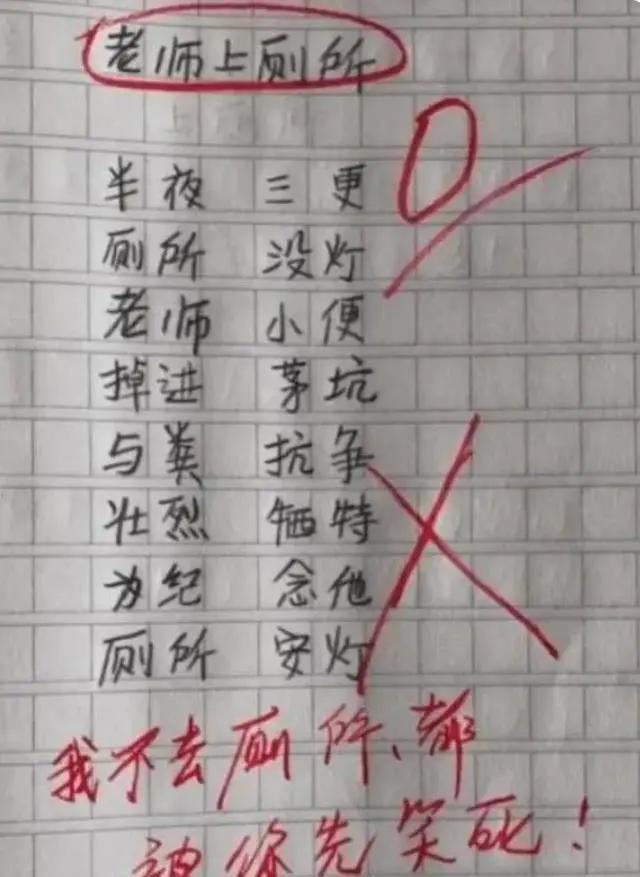 老师上厕所
0
半夜 三更
厕所 没灯
老师 小便
掉进 茅坑
与粪 抗争
壮烈 牺特
为纪 念他
厕所 安灯
我不去厕所、都
被你先笑死！